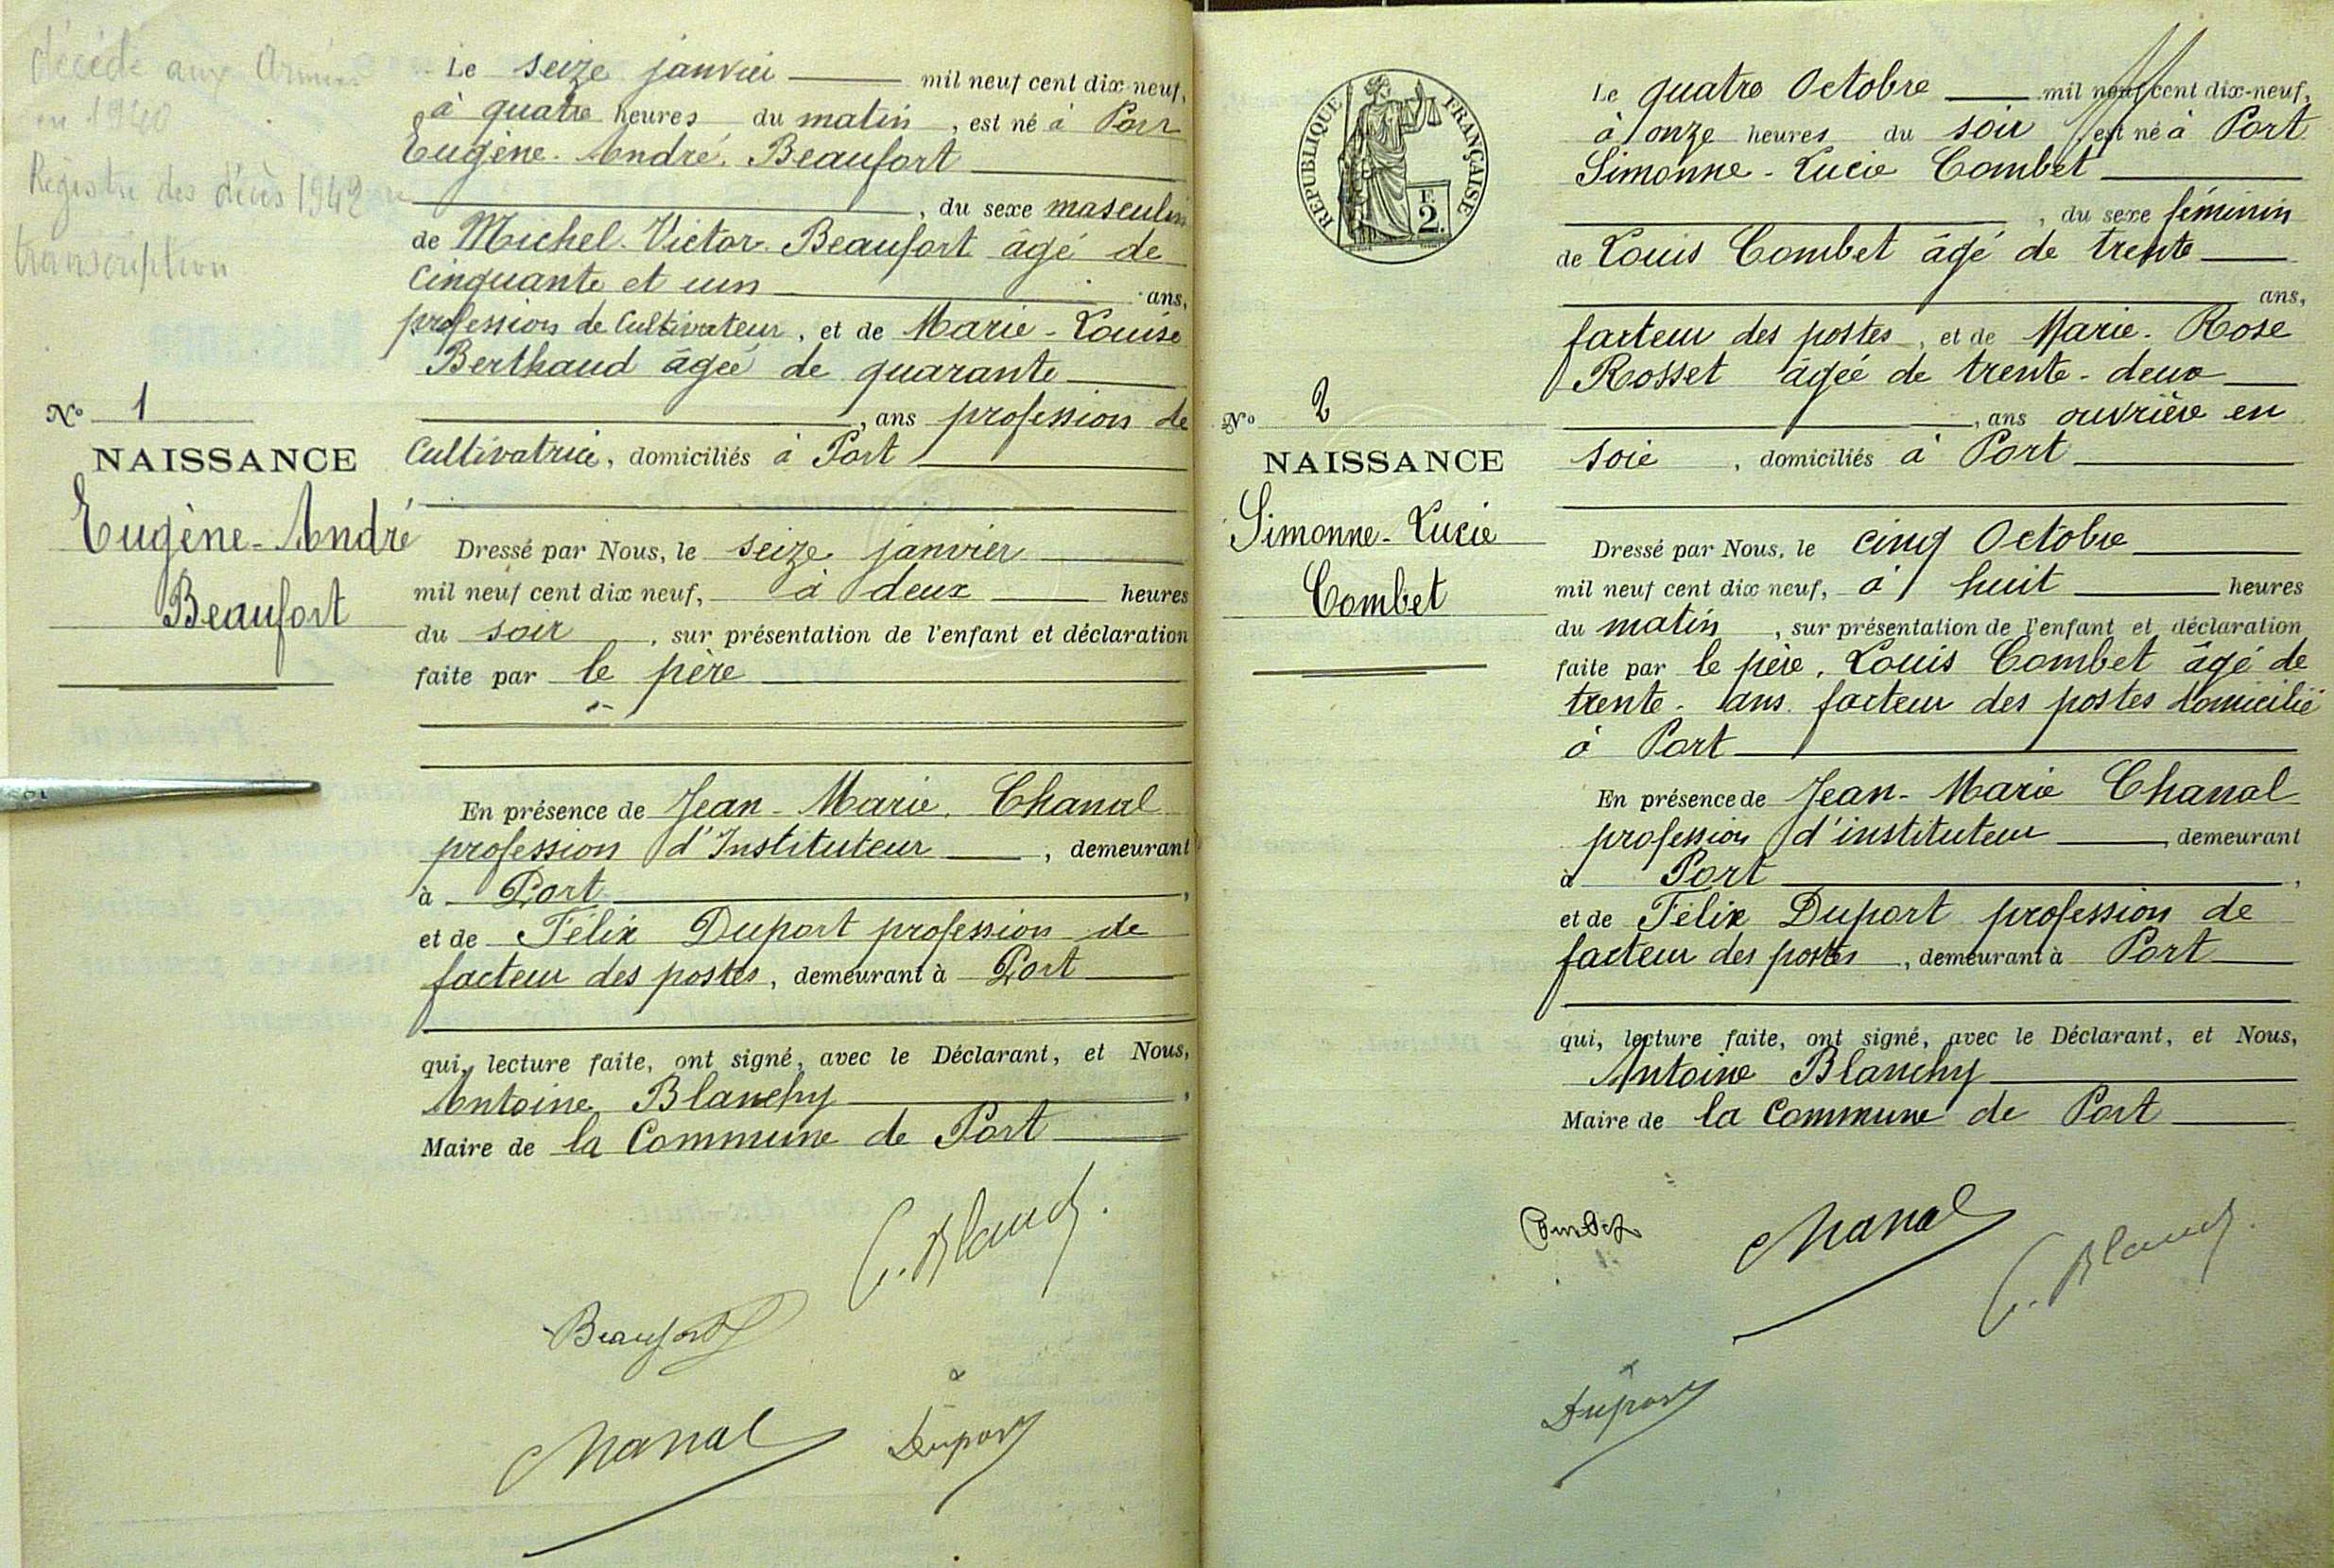 décédé aux Armées
en 1940
Registre des décès 1942
transcription
Nº 1
NAISSANCE
Eugène-André
Beaufort
Le seize janvier mil neuf cent dix-neuf,
à quatre heures du matin, est né à Port
Eugène-André Beaufort
, du sexe masculin
de Michel-Victor Beaufort âgé de
cinquante et un ans,
profession de Cultivateur, et de Marie-Louise
Berthaud âgée de quarante
, ans profession de
Cultivatrice, domiciliés à Port
Dressé par Nous, le seize janvier
mil neuf cent dix neuf, à deux heures
du soir, sur présentation de l'enfant et déclaration
faite par le père
En présence de Jean-Marie Chanal
profession d'Instituteur, demeurant
à Port,
et de Félix Duport profession de
facteur des postes, demeurant à Port
qui, lecture faite, ont signé, avec le Déclarant, et Nous,
Antoine Blanchy,
Maire de la Commune de Port
Beaufort
Chanal
Duport
REPUBLIQUE FRANÇAISE
F
2
Nº 2
NAISSANCE
Simonne-Lucie
Combet
Le quatre Octobre mil neuf cent dix-neuf,
à onze heures du soir est né à Port
Simonne-Lucie Combet
, du sexe féminin
de Louis Combet âgé de trente
ans,
facteur des postes, et de Marie-Rose
Rosset âgée de trente-deux
, ans ouvrière en
soie, domiciliés à Port
Dressé par Nous, le cinq Octobre
mil neuf cent dix neuf, à huit heures
du matin, sur présentation de l'enfant et déclaration
faite par le père, Louis Combet âgé de
trente-ans facteur des postes domicilié
à Port
En présence de Jean-Marie Chanal
profession d'instituteur, demeurant
à Port,
et de Félix Duport profession de
facteur des postes, demeurant à Port
qui, lecture faite, ont signé, avec le Déclarant, et Nous,
Antoine Blanchy
Maire de la Commune de Port
Combet
Chanal
Duport